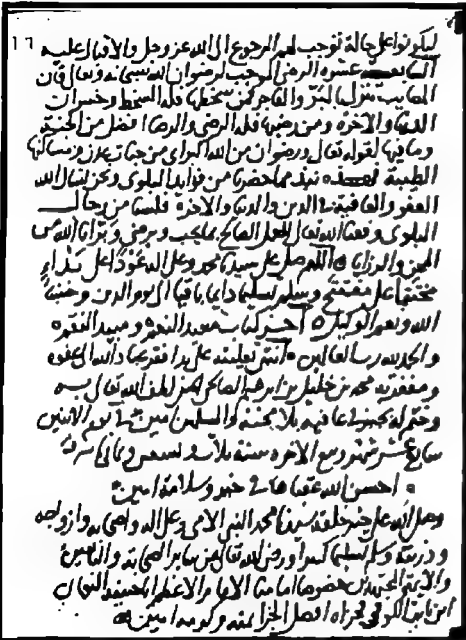 ١٦
ليكونوا على حالة توجب لهم الرجوع الى الله عز وجل والاقبال عليه
السابعة عشره الرضى الموجب لرضوان الله سبحانه وتعالى فان
المصايب تنزل بالبر والفاجر فمن سخطها فله السخط وخسران
الدنيا والاخرة ومن رضيها فله الرضى والرضا افضل من الجنة
وما فيها لقوله تعالى ورضوان من الله اكبر اي من جنات عدن ومساكنها
الطيبة فهذه نبذ مما حضرنا من فوايد البلوى ونحن نسال الله
العفو والعافية في الدين والدنيا والاخرة فلسنا من رجال
البلوى وفقنا الله تعالى للعمل الصالح بما يحب ويرضى وبرانا الله من
المحن والرزايا اللهم صل على سيدنا محمد وعلى اله
مختتما على مفتتح وسلم تسليما دايما باقيا الى يوم الدين وحسبنا
الله ونعم الوكيل اخر كتاب
والحمد لله رب العالمين انتهى تعليقه على يد افقر عباد الله الى عفوه
ومغفرته محمد بن خليل بن ابراهيم الصالحي الحنفي لطف الله تعالى به
وختم له بخير في عافيه بلا محنة والمسلمين امين في يوم الاثنين
سابع عشر شهر ربيع الاخر سنة ثلاث وتسعين وثماني مايه
احسن الله عقباها في خير وسلامة امين
وصلى الله على خير خلقه سيدنا محمد النبي الامي وعلى اله واصحابه وازواجه
وذريته وسلم تسليما كثيرا ورضي الله تعالى عن ساير الصحابة والتابعين
والايمة المجتهدين خصوصا امامنا الامام الاعظم ابا حنيفة النعمان
ابن ثابت الكوفي افضل الجزا بمنه وكرمه امين